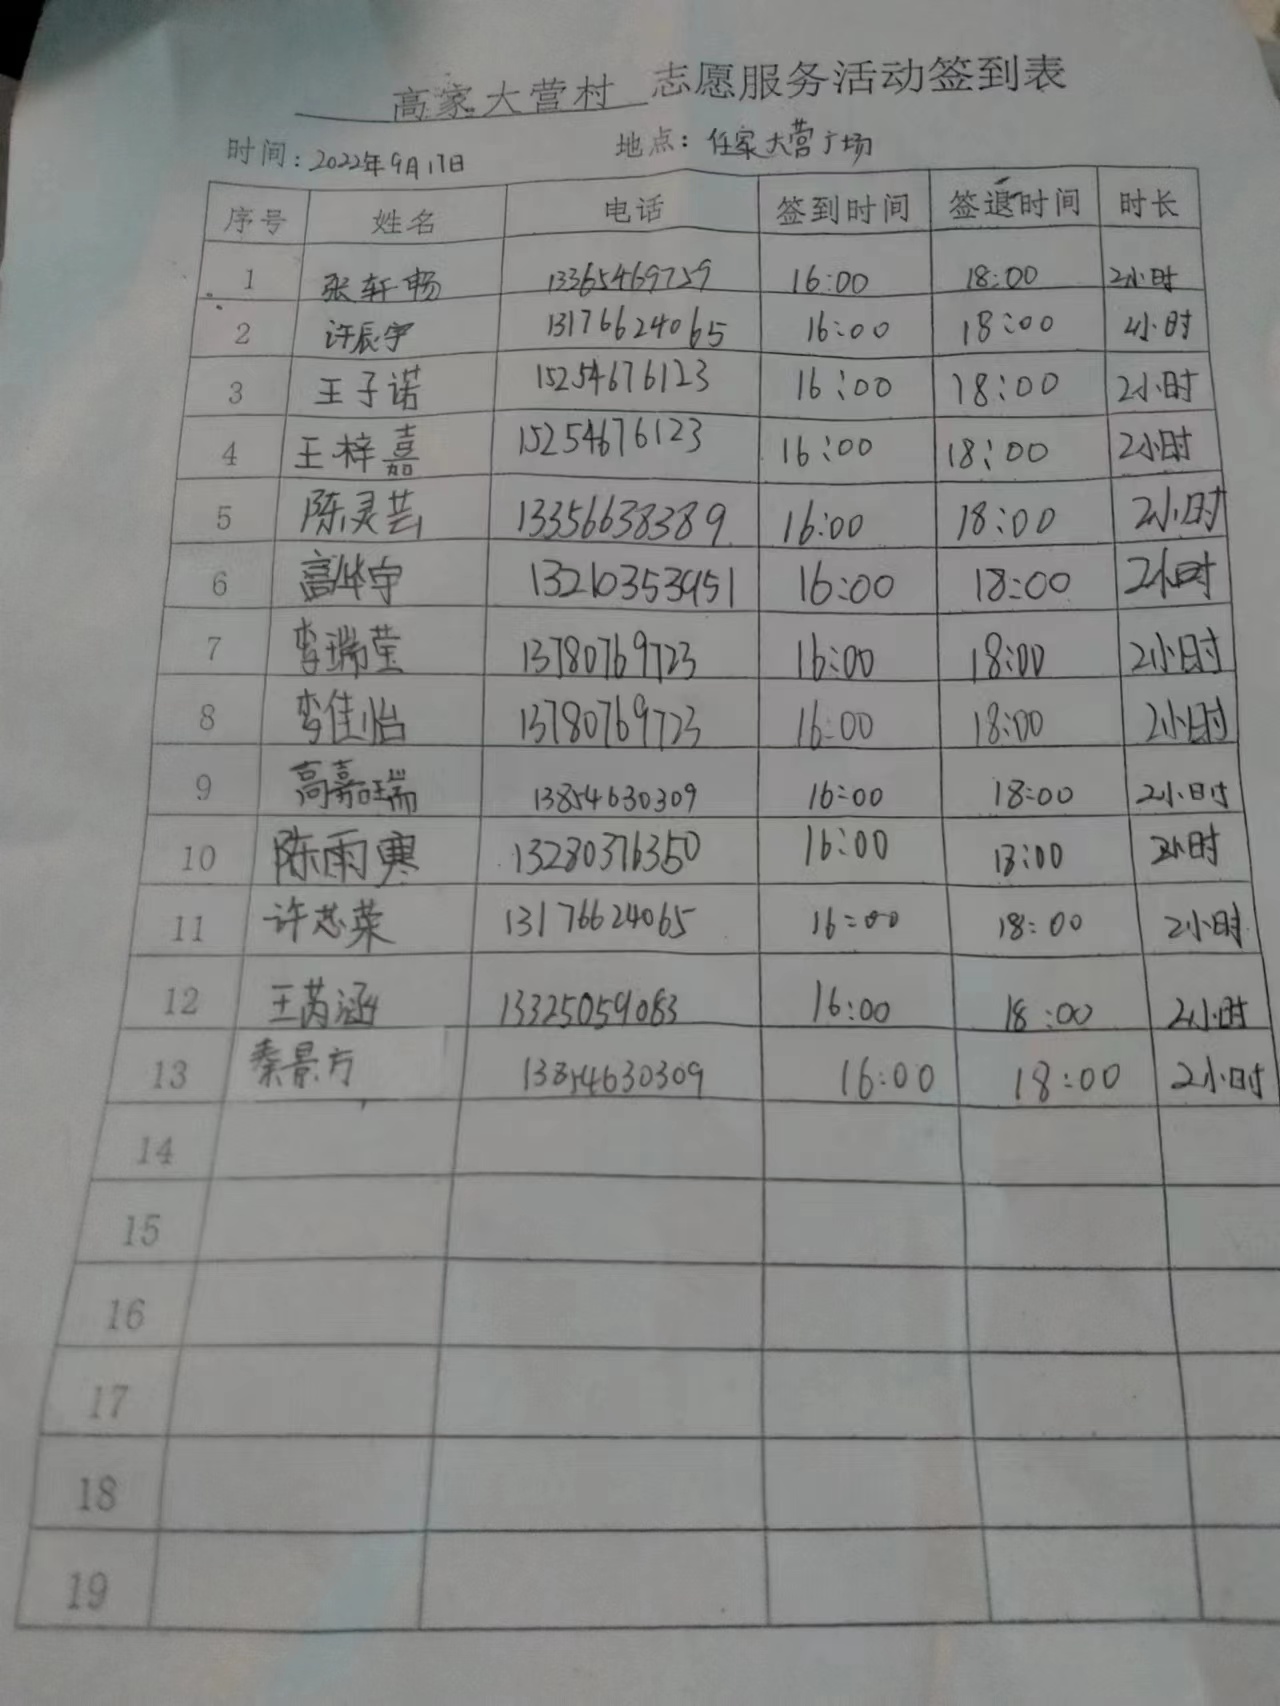 高家大营村 志愿服务活动签到表
时间：2022年9月17日 地点：任家大营广场
序号 姓名 电话 签到时间 签退时间 时长
1 张轩畅 13365469759 16:00 18:00 2小时
2 许辰宇 13176624065 16:00 18:00 2小时
3 王子诺 15254676123 16:00 18:00 2小时
4 王梓嘉 15254676123 16:00 18:00 2小时
5 陈灵芸 13356638389 16:00 18:00 2小时
6 高华宇 13210353951 16:00 18:00 2小时
7 李瑞莹 13780769723 16:00 18:00 2小时
8 李佳怡 13780769723 16:00 18:00 2小时
9 高嘉瑞 13854630309 16:00 18:00 2小时
10 陈雨寒 13280376350 16:00 18:00 2小时
11 许芯菜 13176624065 16:00 18:00 2小时
12 王芮涵 13325059083 16:00 18:00 2小时
13 秦景方 13854630309 16:00 18:00 2小时
14
15
16
17
18
19